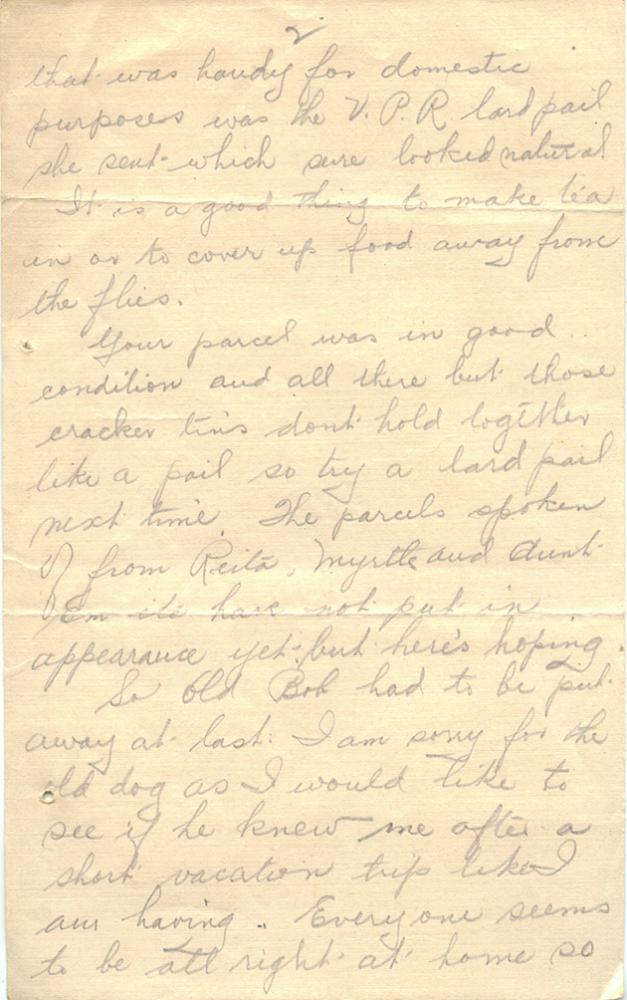 2
that was handy for domestic
purposes was the V. P. R. lard pail
she sent which sure looked natural
It is a good thing to make tea
in or to cover up food away from
the flies.
Your parcel was in good
condition and all there but those
cracker tins dont hold together
like a pail so try a lard pail
next time. The parcels spoken
of from Reita, Myrtle and Aunt
Em etc have not put in
appearance yet but here's hoping.
So old Bob had to be put
away at last. I am sorry for the
old dog as I would like to
see if he knew me after a
short vacation trip like I
am having. Everyone seems
to be all right at home so